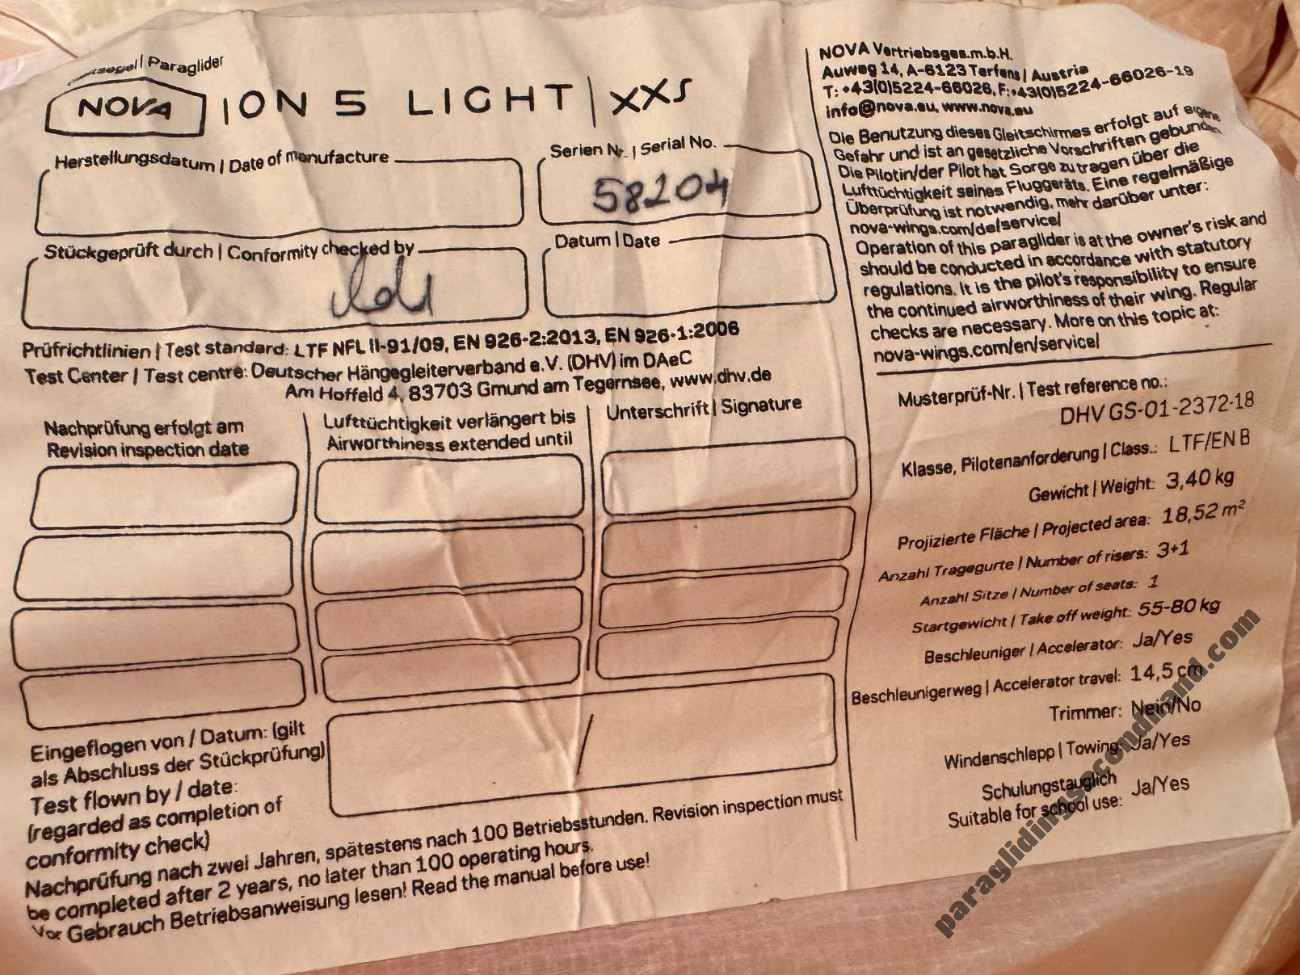 | Paraglider
NOVA ION 5 LIGHT | XXS
Herstellungsdatum | Date of manufacture
Serien Nr. | Serial No.
58204
Stückgeprüft durch | Conformity checked by
Datum | Date
Prüfrichtlinien | Test standard: LTF NFL II-91/09, EN 926-2:2013, EN 926-1:2006
Test Center | Test centre: Deutscher Hängegleiterverband e.V. (DHV) im DAeC
Am Hoffeld 4, 83703 Gmund am Tegernsee, www.dhv.de
Nachprüfung erfolgt am
Revision inspection date
Lufttüchtigkeit verlängert bis
Airworthiness extended until
Unterschrift | Signature
Eingeflogen von / Datum: (gilt
als Abschluss der Stückprüfung)
Test flown by / date:
(regarded as completion of
conformity check)
/
Nachprüfung nach zwei Jahren, spätestens nach 100 Betriebsstunden. Revision inspection must
be completed after 2 years, no later than 100 operating hours.
Vor Gebrauch Betriebsanweisung lesen! Read the manual before use!
NOVA Vertriebsges.m.b.H.
Auweg 14, A-6123 Terfens | Austria
T: +43(0)5224-66026, F:+43(0)5224-66026-19
info@nova.eu, www.nova.eu
Die Benutzung dieses Gleitschirmes erfolgt auf eigene
Gefahr und ist an gesetzliche Vorschriften gebunden
Die Pilotin/der Pilot hat Sorge zu tragen über die
Lufttüchtigkeit seines Fluggeräts. Eine regelmäßige
Überprüfung ist notwendig, mehr darüber unter:
nova-wings.com/de/service/
Operation of this paraglider is at the owner's risk and
should be conducted in accordance with statutory
regulations. It is the pilot's responsibility to ensure
the continued airworthiness of their wing. Regular
checks are necessary. More on this topic at:
nova-wings.com/en/service/
Musterprüf-Nr. | Test reference no.:
DHV GS-01-2372-18
Klasse, Pilotenanforderung | Class.: LTF/EN B
Gewicht | Weight: 3,40 kg
Projizierte Fläche | Projected area: 18,52 m²
Anzahl Tragegurte | Number of risers: 3+1
Anzahl Sitze | Number of seats: 1
Startgewicht | Take off weight: 55-80 kg
Beschleuniger | Accelerator: Ja/Yes
Beschleunigerweg | Accelerator travel: 14,5 cm
Trimmer: Nein/No
Windenschlepp | Towing: Ja/Yes
Schulungstauglich
Suitable for school use: Ja/Yes
paraglidingsecondhand.com